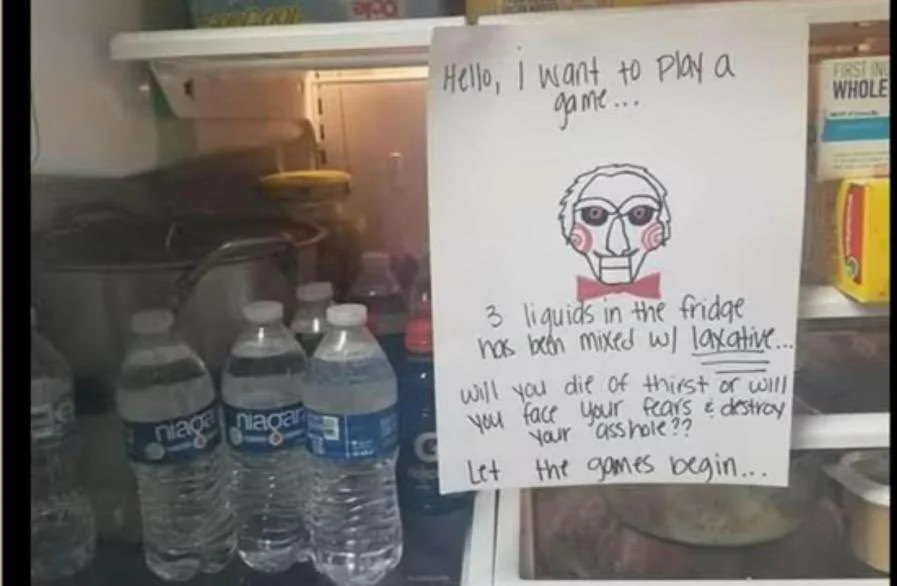 Dole
FIRST
WHOLE
Hello, i want to play a
game...
3 liquids in the fridge
has been mixed w/ laxative...
will you die of thirst or will
you face your fears & destroy
your asshole??
Let the games begin...
niagar
niagar
G